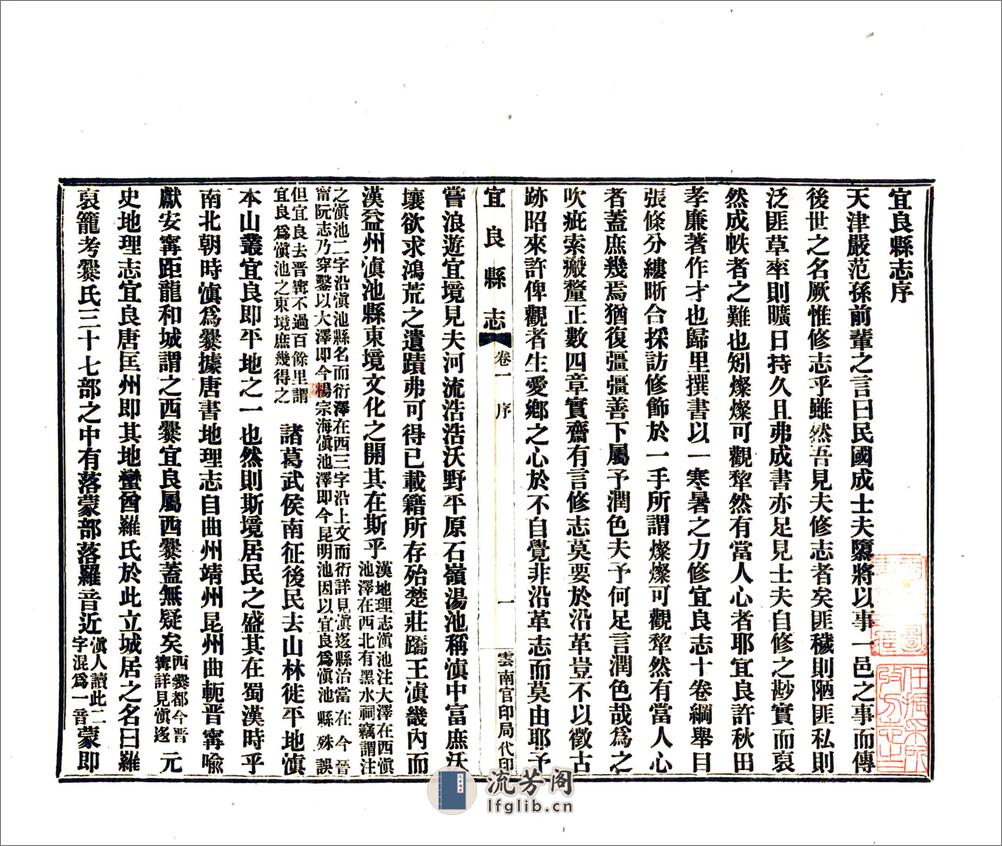 宜良縣志序
天津嚴范孫前輩之言曰民國成士夫鑒將以事一邑之事而傳
後世之名厥惟修志乎雖然吾見夫修志者矣匪穢則陋匪私則
泛匪草率則曠日持久且弗成書亦足見士夫自修之尠實而裒
然成帙者之難也矧燦燦可觀犂然有當人心者耶宜良許秋田
孝廉著作才也歸里撰書以一寒暑之力修宜良志十卷綱舉目
張條分縷晰合採訪修飾於一手所謂燦燦可觀犂然有當人心
者蓋庶幾焉猶復彊彊善下屬予潤色夫予何足言潤色哉為之
吹疵索瘢釐正數四章實齋有言修志莫要於沿革豈不以徵古
跡昭來許俾觀者生愛鄉之心於不自覺非沿革志而莫由耶予
宜良縣志 卷一 序 一 雲南官印局代印
嘗浪遊宜境見夫河流浩浩沃野平原石嶺湯池稱滇中富庶沃
壤欲求鴻荒之遺蹟弗可得已載籍所存殆楚莊蹻王滇畿內而
漢益州滇池縣東境文化之開其在斯乎漢地理志滇池注大澤在西滇
池澤在西北有黑水祠竊謂注
之滇池二字沿滇池縣名而衍澤在西三字沿上文而衍詳見滇迻縣治當在今晉
甯阮志乃穿鑿以大澤即今楊宗海滇池澤即今昆明池因以宜良為滇池縣殊誤
但宜良去晉甯不過百餘里謂
宜良為滇池之東境庶幾得之
諸葛武侯南征後民去山林徙平地滇
本山叢宜良即平地之一也然則斯境居民之盛其在蜀漢時乎
南北朝時滇為爨據唐書地理志自曲州靖州昆州曲軛晉甯喻
獻安甯距龍和城謂之西爨宜良屬西爨蓋無疑矣西爨都今晉
甯詳見滇迻
元
史地理志宜良唐匡州即其地蠻酋羅氏於此立城居之名曰羅
裒籠考爨氏三十七部之中有落蒙部落羅音近滇人讀此二
字混為一音
蒙即
流芳阁
lfglib.cn